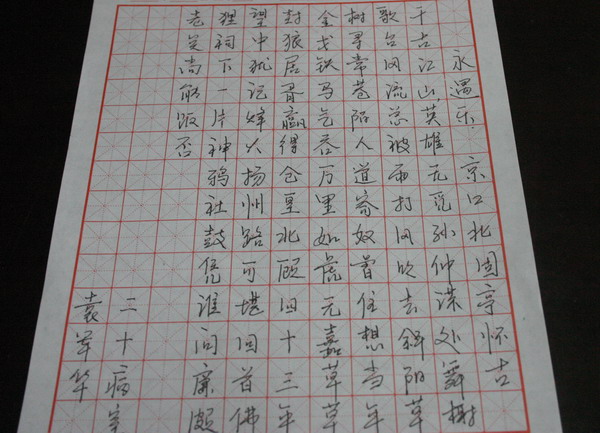 永遇乐 京口北固亭怀古
千古江山英雄无觅孙仲谋处舞榭
歌台风流总被雨打风吹去斜阳草
树寻常巷陌人道寄奴曾住想当年
金戈铁马气吞万里如虎元嘉草草
封狼居胥赢得仓皇北顾四十三年
望中犹记烽火扬州路可堪回首佛
狸祠下一片神鸦社鼓凭谁问廉颇
老矣尚能饭否
三十病室
袁军华